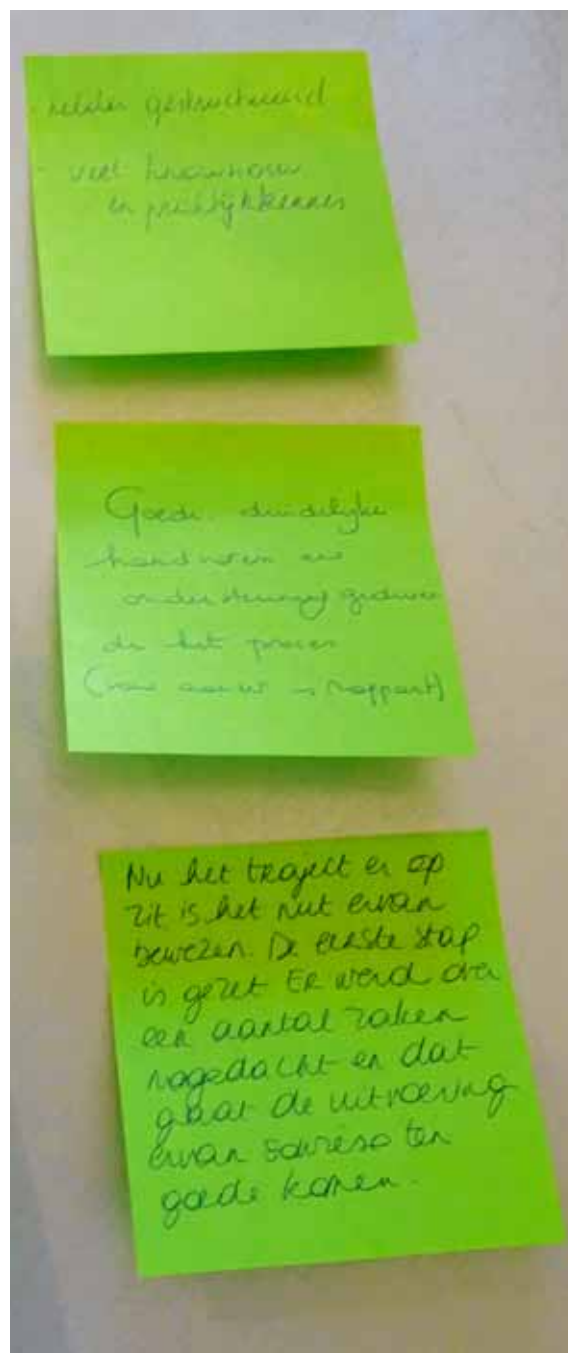 - helder gestructureerd
- veel knowhow
en praktijkkennis
Goede duidelijke
handvaten en
ondersteuning gedurende
de het proces
(van    rapport)
Nu het traject er op
zit is het nut ervan
bewezen. De eerste stap
is gezet Er werd over
een aantal zaken
nagedacht en dat
gaat de uitvoering
ervan sowieso ten
goede komen.